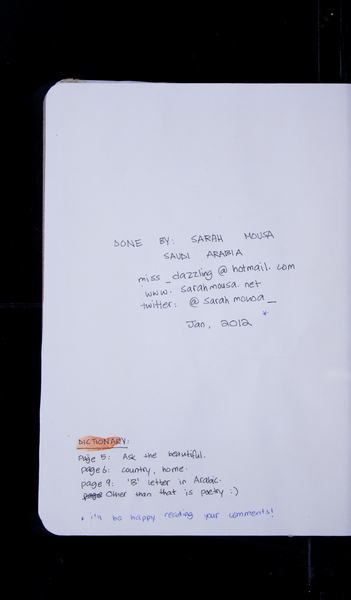 DONE BY: SARAH MOUSA
SAUDI ARABIA
miss_dazzling@hotmail.com
www.sarahmousa.net
twitter: @sarahmousa_
*
Jan, 2012
DICTIONARY:
page 5: Ask the beautiful.
page 6: country, home.
page 9: 'B' letter in Arabic.
Other than that is poetry :)
* i'll be happy reading your comments!